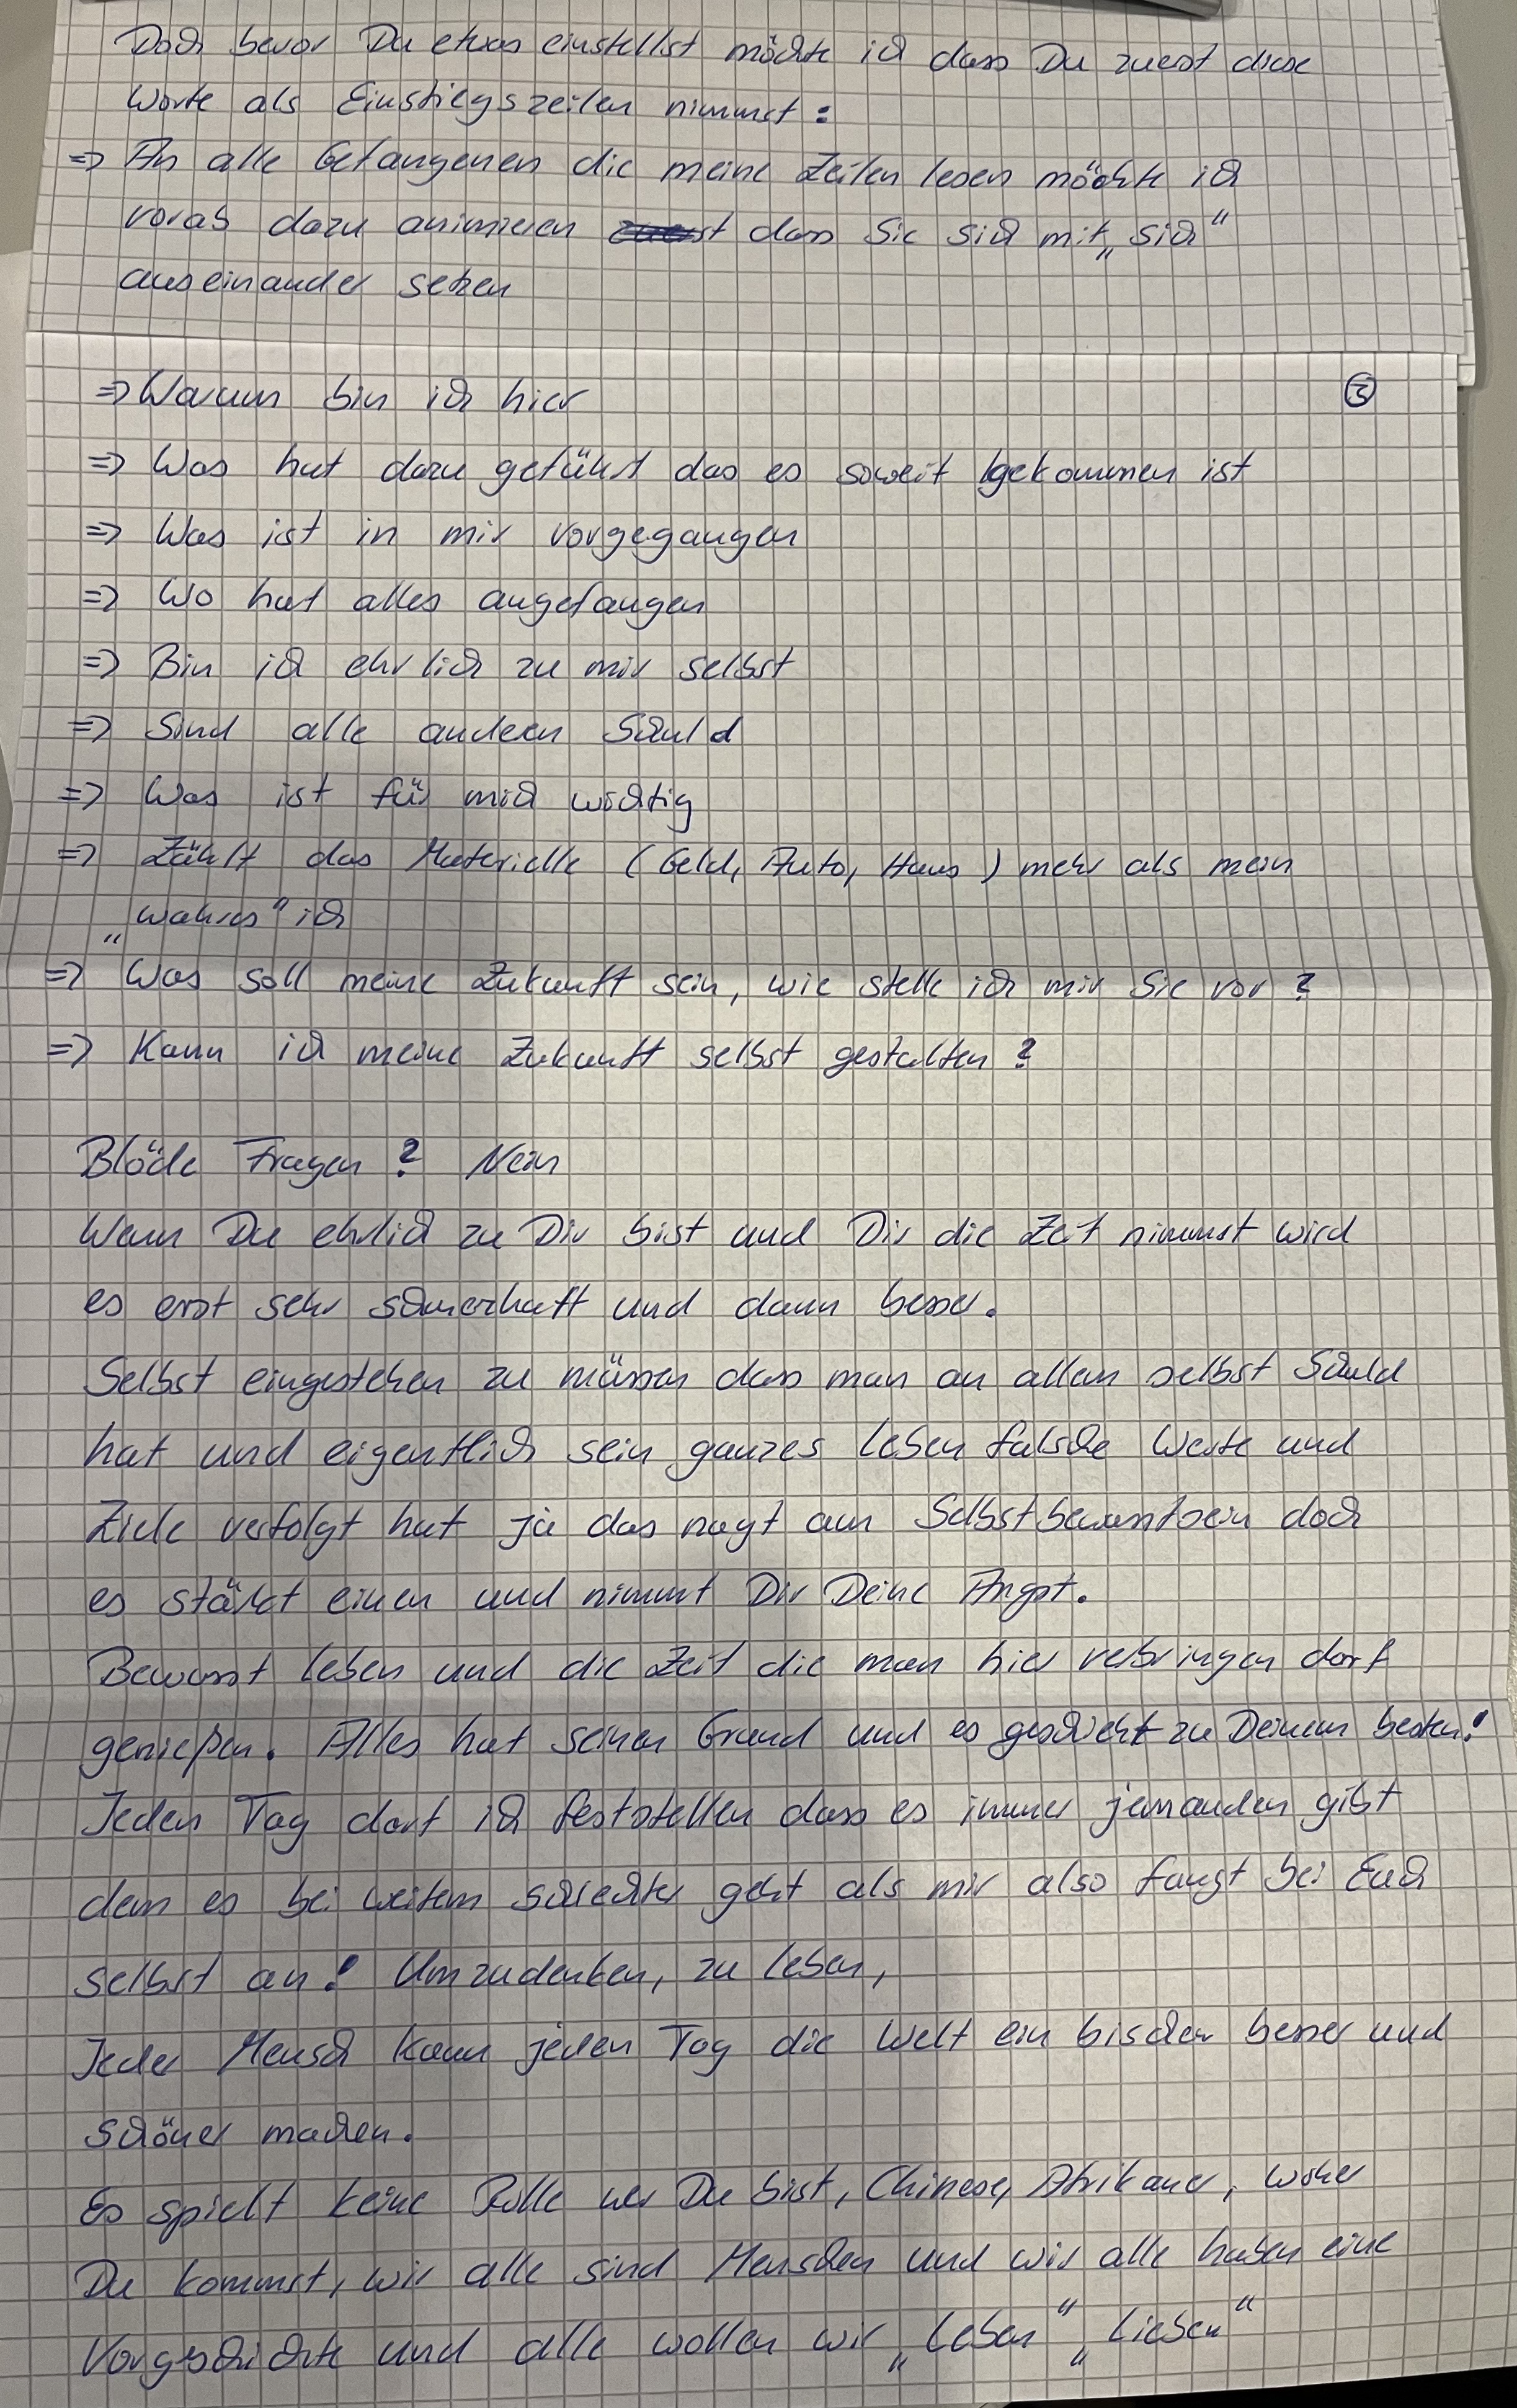 Doch bevor Du etwas einstellst möchte ich dass Du zuerst diese
Worte als Einstiegszeilen nimmst:
=> An alle Gefangenen die meine Zeilen lesen möchte ich
vorab dazu animieren dass Sie sich mit „sich"
auseinander setzen
③
=> Warum bin ich hier
=> Was hat dazu geführt das es soweit gekommen ist
=> Was ist in mir vorgegangen
=> Wo hat alles angefangen
=> Bin ich ehrlich zu mir selbst
=> Sind alle anderen Schuld
=> Was ist für mich wichtig
=> Zählt das Materielle (Geld, Auto, Haus) mehr als mein
„wahres" ich
=> Was soll meine Zukunft sein, wie stelle ich mir Sie vor?
=> Kann ich meine Zukunft selbst gestalten?
Blöde Fragen? Nein
Wenn Du ehrlich zu Dir bist und Dir die Zeit nimmst wird
es erst sehr schmerzhaft und dann besser.
Selbst eingestehen zu müssen dass man an allem selbst Schuld
hat und eigentlich sein ganzes Leben falsche Werte und
Ziele verfolgt hat ja das nagt am Selbstbewusstsein doch
es stärkt einen und nimmt Dir Deine Angst.
Bewusst leben und die Zeit die man hier verbringen darf
genießen. Alles hat seinen Grund und es geschieht zu Deinem besten!
Jeden Tag darf ich feststellen dass es immer jemanden gibt
dem es bei weitem schlechter geht als mir also fangt bei Euch
selbst an! Umzudenken, zu leben,
Jeder Mensch kann jeden Tag die Welt ein bischen besser und
schöner machen.
Es spielt keine Rolle wer Du bist, Chinese, Afrikaner, woher
Du kommst, wir alle sind Menschen und wir alle haben eine
Vorgeschichte und alle wollen wir „Leben" „Lieben"